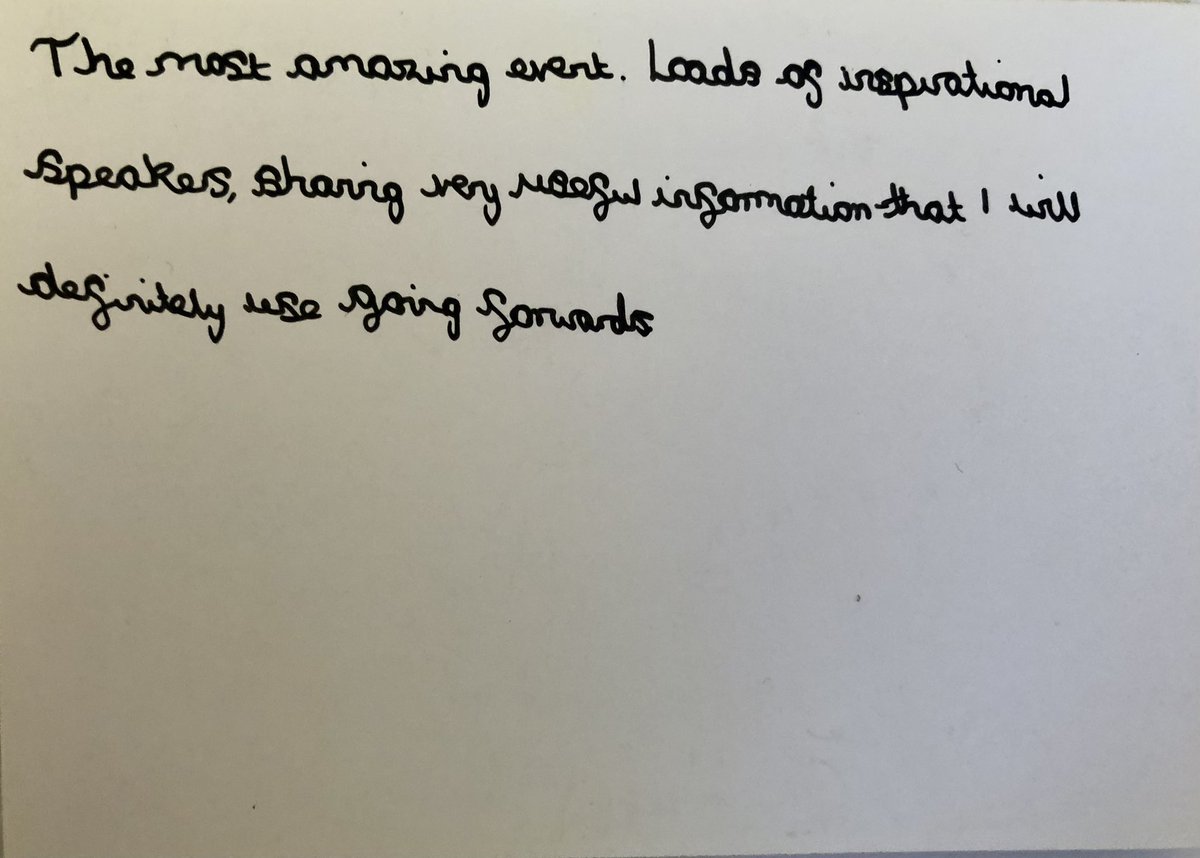 The most amazing event. Loads of inspirational
speakers, sharing very useful information that I will
definitely use going forwards